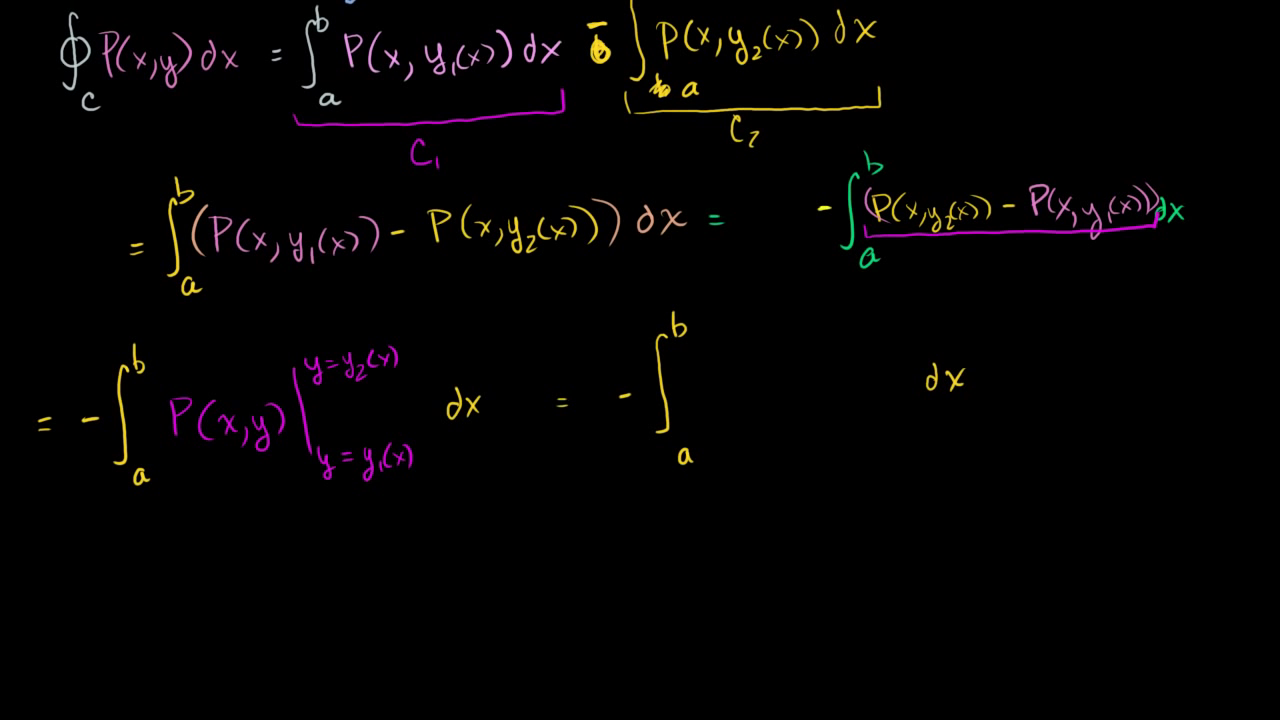 ∮_C P(x,y) dx = ∫_a^b P(x, y₁(x)) dx - ∫_a P(x, y₂(x)) dx
C₁ C₂
= ∫_a^b (P(x, y₁(x)) - P(x, y₂(x))) dx = - ∫_a^b (P(x, y₂(x)) - P(x, y₁(x))) dx
= - ∫_a^b P(x,y) |_{y = y₁(x)}^{y = y₂(x)} dx = - ∫_a^b dx